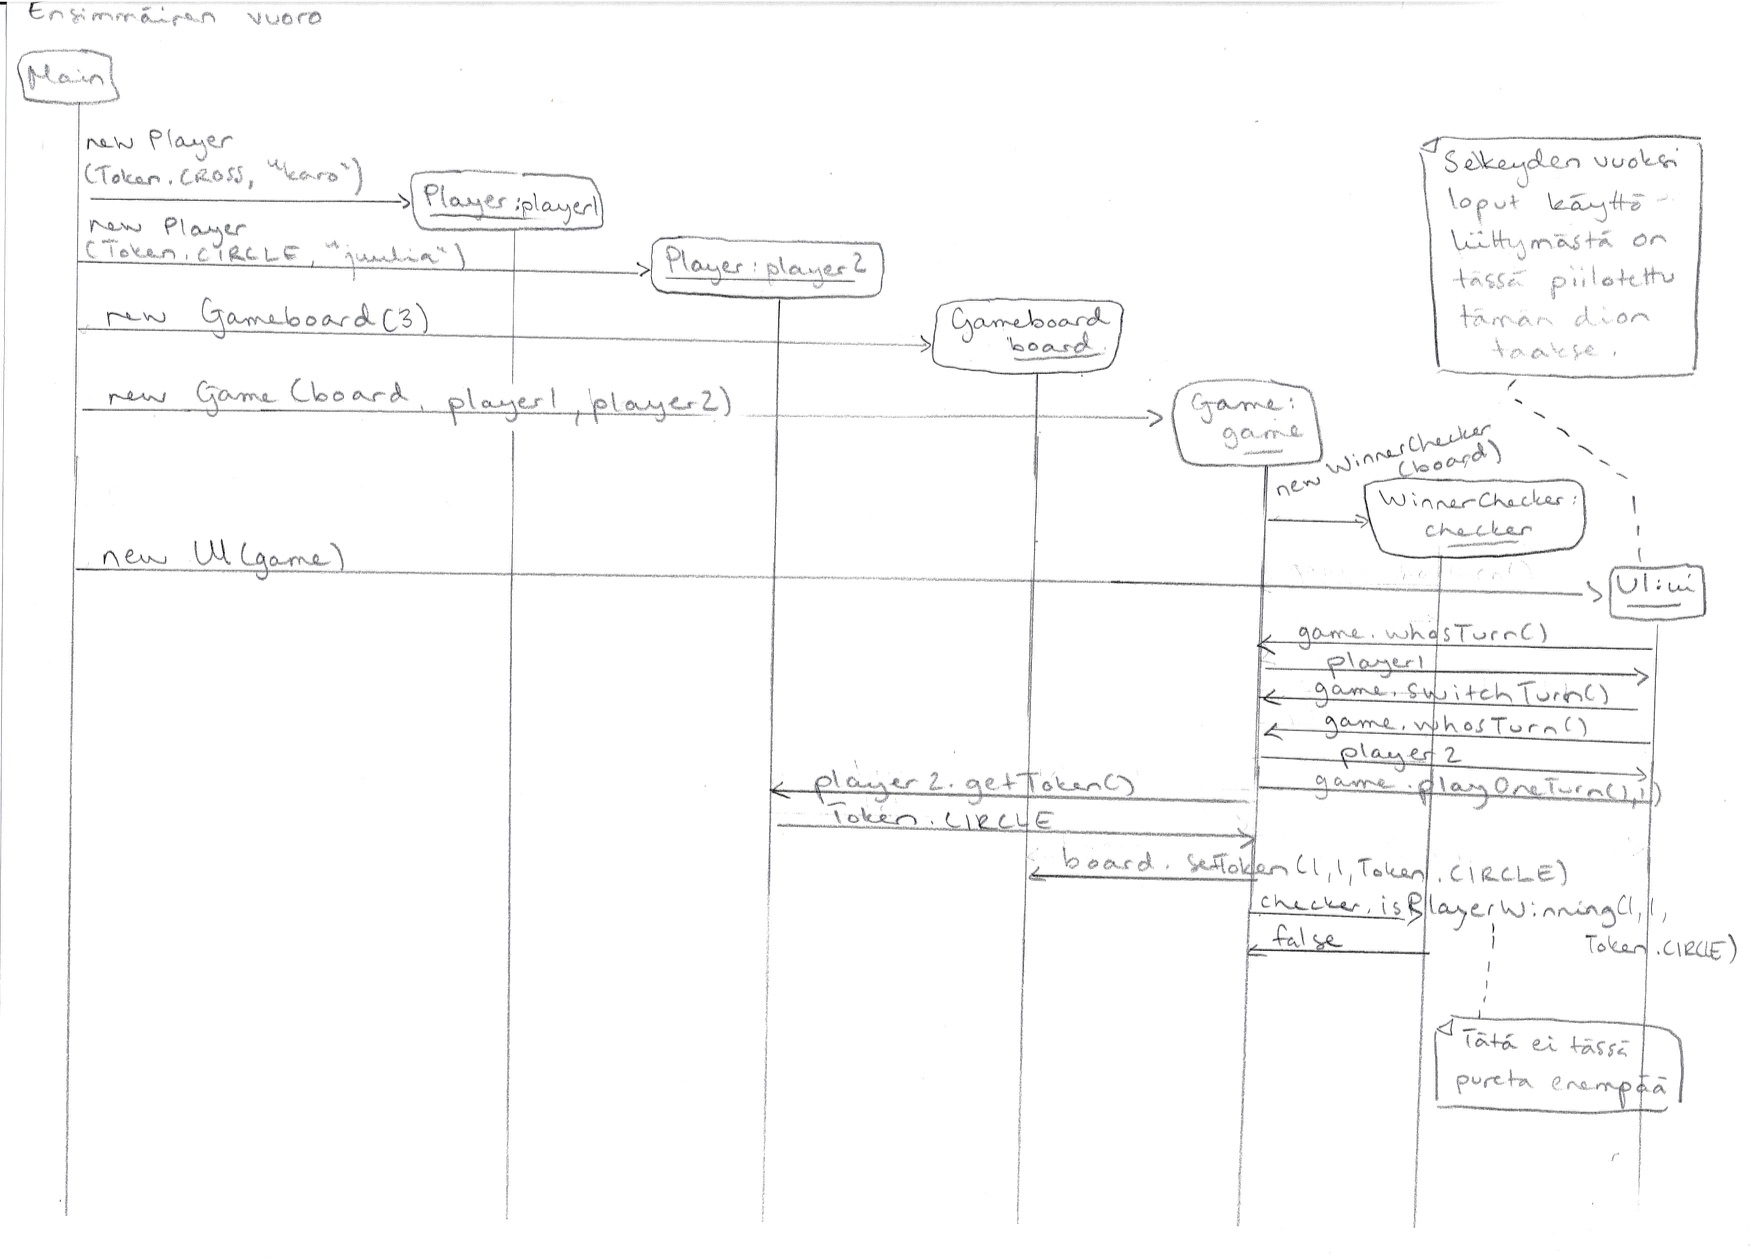 Ensimmäinen vuoro
Main
new Player
(Token.CROSS, "karo")
Player:player1
new Player
(Token.CIRCLE, "juulia")
Player:player2
new Gameboard(3)
Gameboard
board
new Game(board, player1, player2)
Game:
game
new WinnerChecker
(board)
WinnerChecker:
checker
Selkeyden vuoksi
loput käyttö-
liittymästä on
tässä piilotettu
tämän dion
taakse.
new UI(game)
UI:ui
game.whosTurn()
player1
game.switchTurn()
game.whosTurn()
player2
game.playOneTurn(1,1)
player2.getToken()
Token.CIRCLE
board.setToken(1,1,Token.CIRCLE)
checker.isPlayerWinning(1,1,
Token.CIRCLE)
false
Tätä ei tässä
pureta enempää